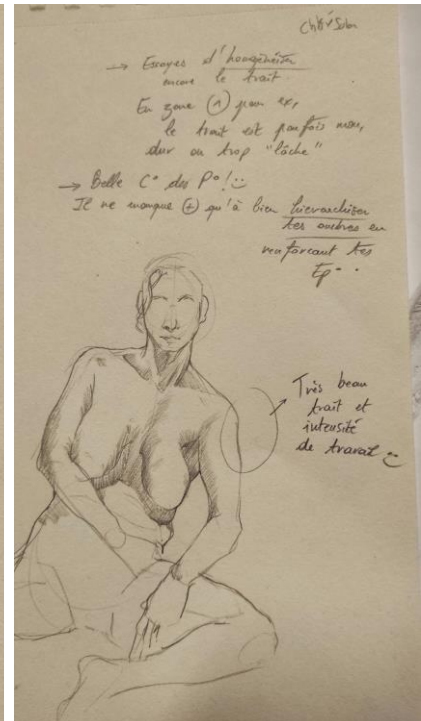 → Essayes d'homogénéiser
encore le trait.
En zone (1) pour ex,
le trait est parfois mou,
dur ou trop "lâche"
→ Belle C° des P°! :)
Il ne manque (+) qu'à bien hiérarchiser
tes ombres en
renforçant tes
Ep
Très beau
trait et
intensité
de travail :)